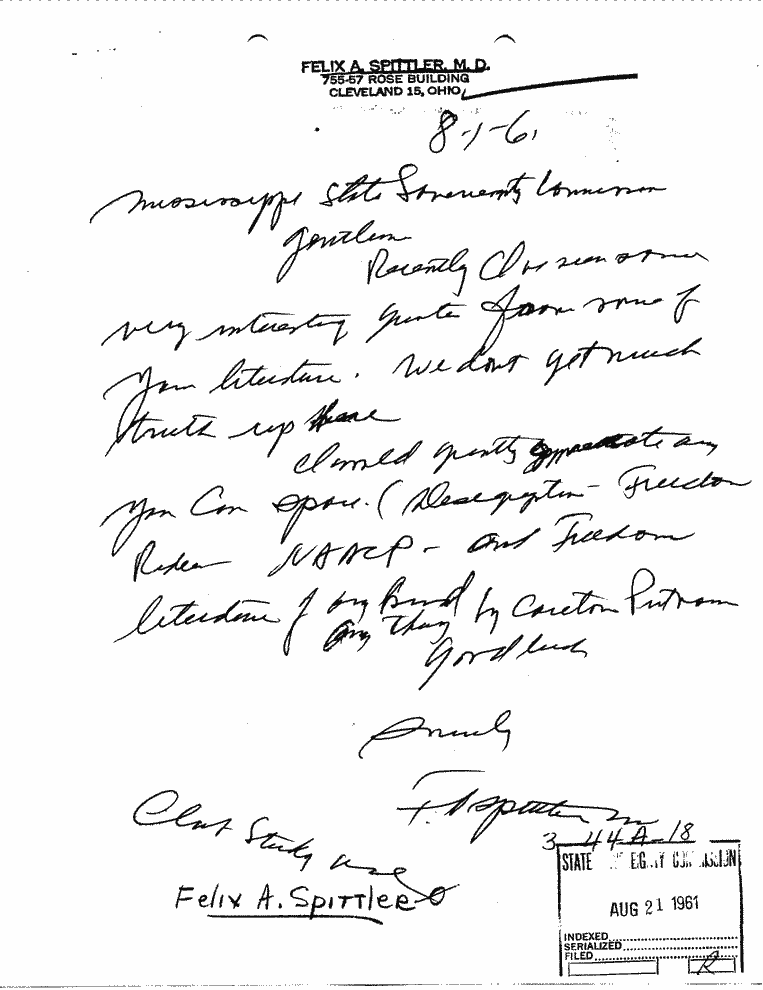 FELIX A. SPITTLER, M. D.
755-57 ROSE BUILDING
CLEVELAND 15, OHIO
8-1-61
Mississippi State Sovereignty Commission
Gentlemen
Recently I have seen some
very interesting quotes from some of
your literature. We dont get much
truth up here
I would greatly appreciate any
you can spare. (Desegregation - Freedom
Riders NAACP - and Freedom
literature of any kind by Careton Putnam
any thing
Good luck
Sincerely
F. A Spittler
Club Study use
Felix A. Spittler
3-44A-18
STATE COMMISSION
AUG 21 1961
INDEXED
SERIALIZED
FILED
R